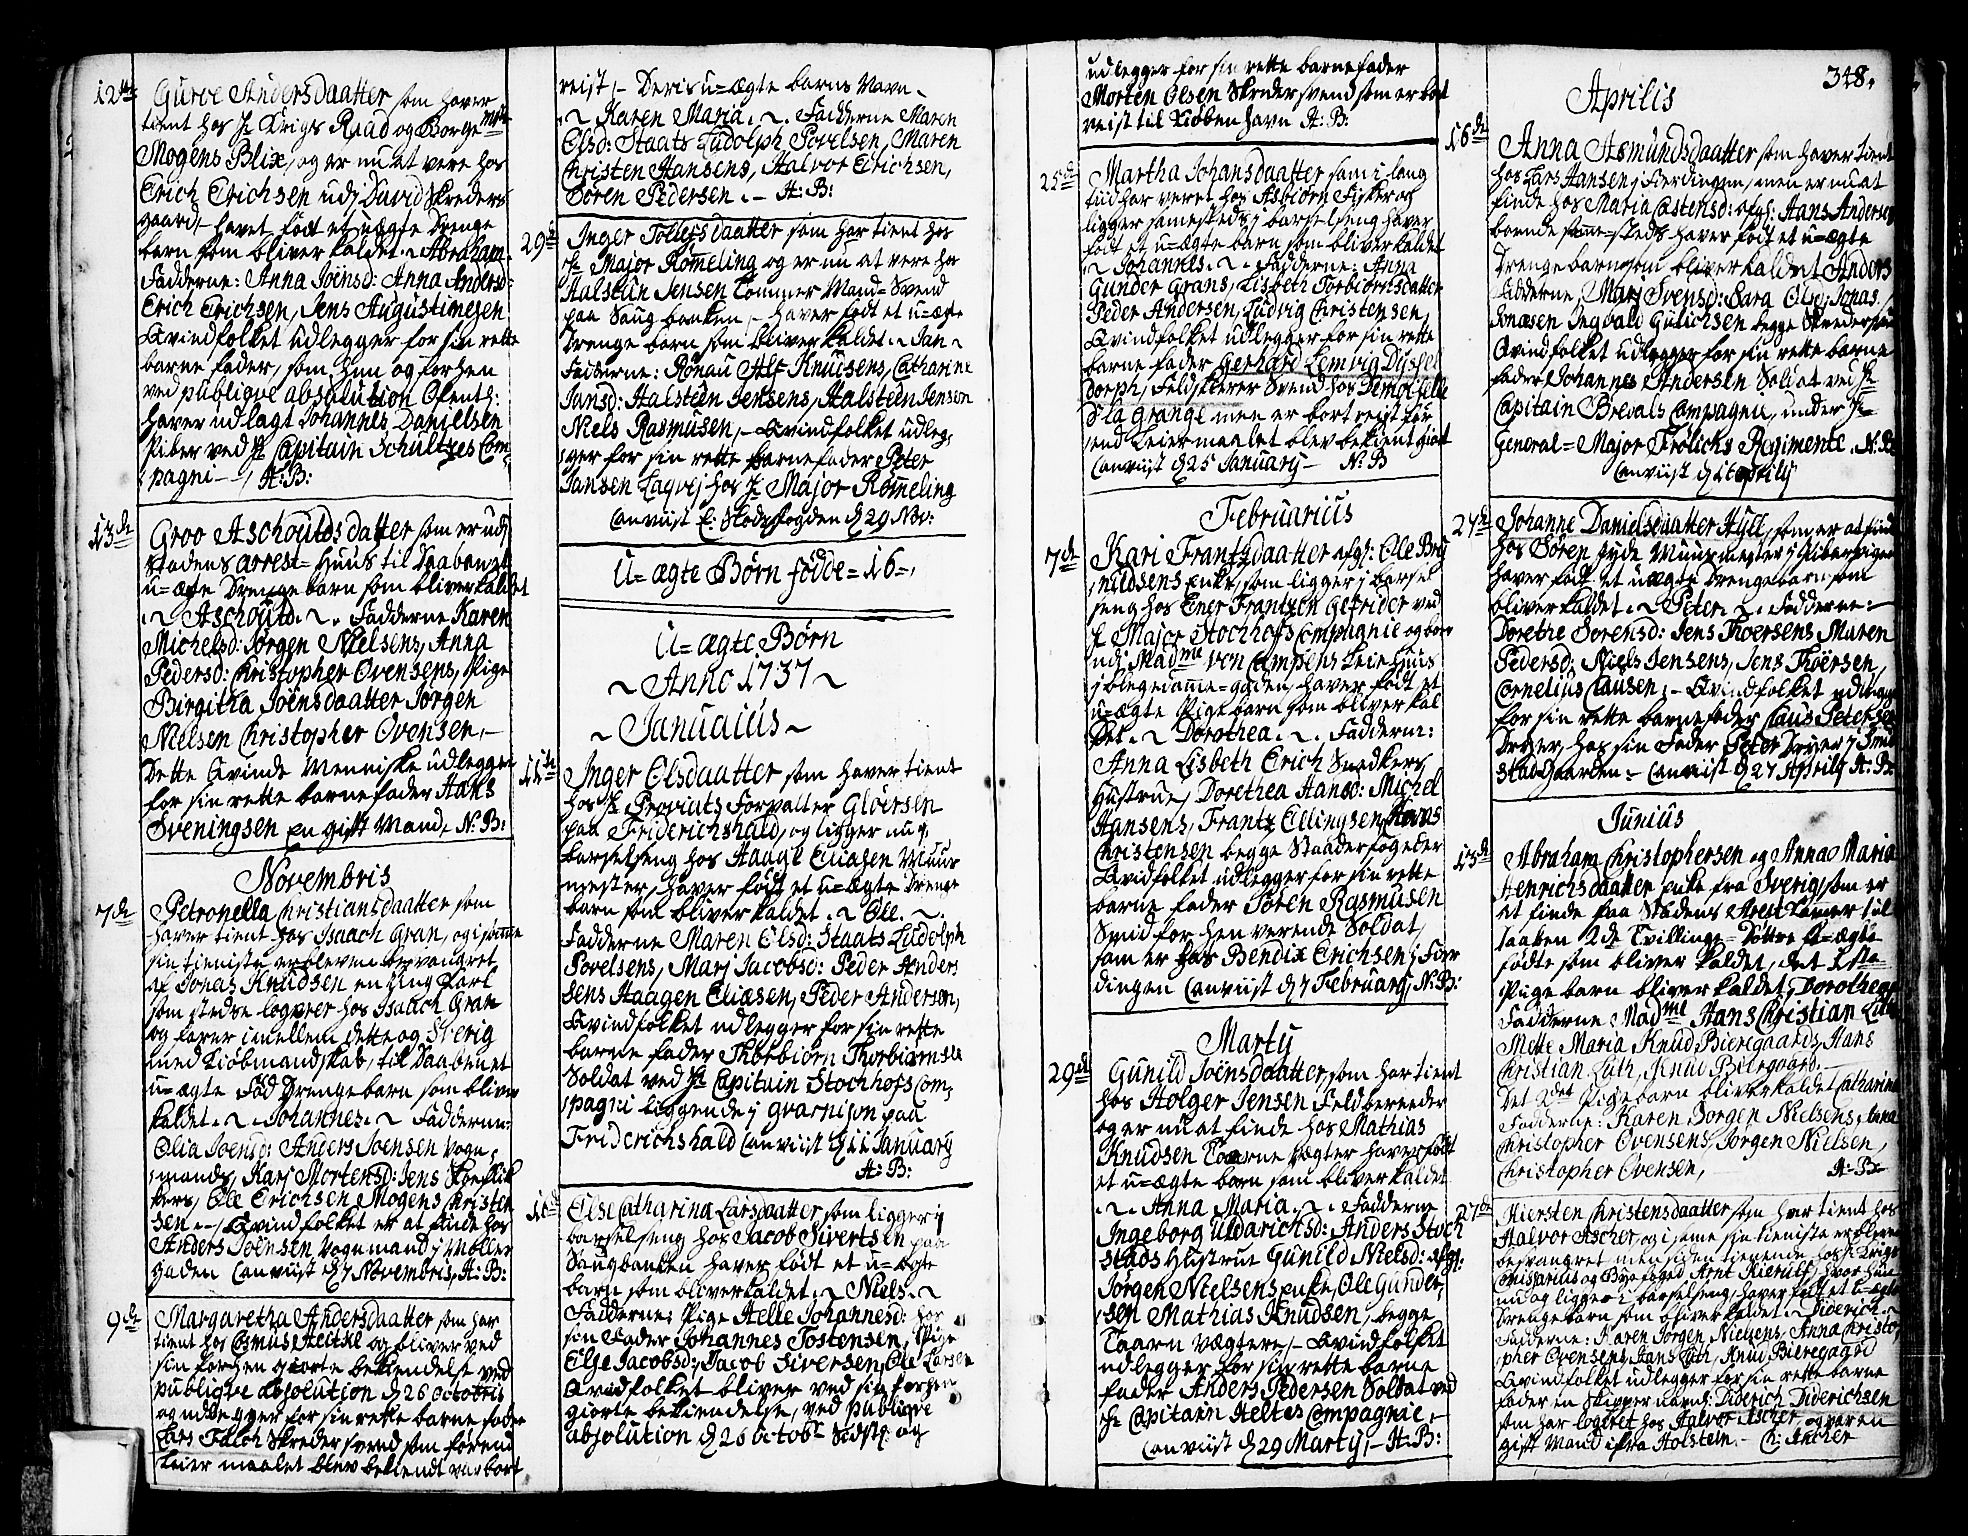 12te Guroe Andersdaatter som hafver
tient hos Hr Krigs Raad og Borgemstr
Mogens Blix, og er nu at vere hos
Erich Erichsen udj David Skreders
gaard, havet født et uægte Drenge
barn som bliver kaldet Abraham
Fadderne: Anna Joensd: Anna Andersd:
Erich Erichsen, Jens Augustinesen
Qvindfolket udlegger for sin rette
barne fader, som hun og forhen
ved publique absolution Ofentl:
haver udlagt Johannes Danielsen
Piber ved Hr Capitain Schultzes Com-
pagni - A:B:
13de Groo Aschouldsdatter som er udj
Stadens arrest-Huus til Daaben et
u=ægte Drengebarn som bliver kaldet
Aschould. Fadderne Karen
Michelsd: Jørgen Nielsens, Anna
Pedersd: Christopher Ovensens, Pige
Birgitha Joensdaatter Jørgen
Nielsen Christopher Ovensen,
Dette Qvinde Menniske udlegger
for sin rette barnefader Hans
Sveningsen En gift Mand, N:B:
Novembris
7de Petronella Christiansdaatter som
haver tient hos Isaach Gran, og i samme
sin tieniste er bleven besvangret
af Jonas Knudsen en Ung Karl
som stedse logerer hos Isaach Gran
og farer imellem dette og Sverig
med Kiøbmandskab, til Daaben et
u=ægte Fød Drengebarn som bliver
kaldet Johannes. Fadderne:
Olia Joensd: Anders Joensen Vogn,
mands, Karj Mortensd: Jens Koeflik
kers, Ole Erichsen Mogens Christen
sen, Qvindfolket er at finde hos
Anders Joensen Vognmand j Møller
gaden Canviist d 7 Novembris, A:B:
9de Margaretha Andersdaatter som har
tient hos Casmus Heltke og bliver ved
sin forhen giorte bekiendelse ved
publique absolution d 26 octobris
og udlegger for sin rette barne fader
Lars Falch Skreder svend som førend
Leier maalet blev bekiendt var bort
reist, Deris u=ægte barns Navn
Karen Maria. Fadderne Maren
Olsd: Staats Ludolph Povelsen, Maren
Christen Hansens, Halvor Erichsen,
Søren Pedersen. A:B:
29de Inger Tollefsdaatter som har tient hos
Hr Major Rømeling og er nu at vere hos
Halsteen Jensen Tømmer Mand-Svend
paa Saug banken, haver født et u=ægte
Drenge barn som bliver kaldet Jan
Fadderne: Rønau Alf Knudsens, Catharine
Jansd: Halsteen Jensens, Halsteen Jensen
Niels Rasmusen, Qvindfolket udleg,
ger for sin rette barnefader Peter
Jansen Laqvej hos Hr Major Rømeling
Canviist E: Stods fogden d 29 Nov:
U=ægte Børn fødde=16=
U=ægte Børn
Anno 1737
Januaius
11te Inger Olsdaatter som haver tient
hos Hr Proviants Forvalter Gløersen
paa Friderichshald, og ligger nu j
barselseng hos Haage Eliasen Muur
mester, haver født et u=ægte Drenge
barn som bliver kaldet Ole.
Fadderne Maren Olsd: Staats Ludolph
Povelsens, Marj Jacobsd: Peder Anders
sens Haagen Eliasen, Peder Andersen,
Qvindfolket udlegger for sin rette
barne fader Thorbiørn Thorbiørnsen
Soldat ved Hr Capitain Stochhofs Com,
pagni liggende j Gvarnison paa
Friderichshald Canviist d 11 January
A:B:
16de Else Catharina Larsdaatter som ligger j
barselseng hos Jacob Sivertsen paa
Saugbanken haver født et u=ægte
barn som bliver kaldet Niels
Fadderne: Pige Helle Johannesd: hos
sin Fader Johannes Tostensen, Pige
Else Jacobsd: Jacob Siversen, Ole Larsen
Qvindfolket bliver ved sin forhen
giorte bekiendelse, ved publique
absolution d 26 octobr Sidstl. og
udlegger for sin rette barnefader
Morten Olsen Skreder svend som er bort
reist til Kiøbenhavn A:B:
25de Martha Johansdaatter som i lang
tiid har veret hos Asbiørn Fisker og
ligger sammesteds j barselseng haver
født et u=ægte barn som bliver kaldet
Johannes. Fadderne: Anna
Gunder Grans, Lisbeth Torbiørnsdatter
Peder Andersen, Ludvig Christensen,
Qvindfolket udlegger for sin rette
barne fader Gerhard Lemvig Dyssel
dorph, Feldskierer Svend hos Demoiselle
D'la Grange men er bort reist før
end Leiermaalet blev bekient giort
Canviist d 25 January N:B
Februarius
7de Kari Frantzdaatter afgl: Ole Bry
nildsens enke, som ligger j barsel
seng hos Ener Frantzen Gefrider ved
Hr Major Stochhofs Compagnie og boer
udj Madme von Campens Leie Huus
j blegedamme-gaden, haver født et
u=ægte Pige barn som bliver kal
det Dorothea. Fadderne:
Anna Lisbeth Erich Snedkers
Hustrue, Dorethea Hansd: Michel
Hansens, Frantz Ellingsen, Hans
Christensen begge Staaderfogeder
Qvidfolket udlegger for sin rette
barne fader Søren Rasmusen
Smid for hen verende Soldat,
som er hos Bendix Erichsen j Fier
dingen Canviist d 7 February, N:B:
Martij
29de Gunild Joensdaatter, som har tient
hos Holger Jensen Feldbereeder
og er nu at finde hos Mathias
Knudsen Taarne Vegter haver født
et u=ægte barn som bliver kaldet
Anna Maria. Fadderne
Ingeborg Uldarichsd: Anders Stoch
Stads Hustrue Gunild Nielsd: afgl:
Jørgen Nielsens enke, Ole Gunder,
sen Mathias Knudsen, begge
Taarn Vegtere, Qvindfolket
udlegger for sin rette barne
fader Anders Pedersen Soldat ved
Hr Capitain Heltes Compagnie,
Canviist d 29 Martij, A:B:
348.
Aprilis
16de Anna Asmundsdaatter som haver tient
hos Lars Hansen j Fierdingen, men er nu at
finde hos Maria Castensd: afgl: Hans Andersens
boende samme steds haver født et u=ægte
Drengebarn som bliver kaldet Anders
Fadderne, Marj Svensd: Sara Olsd, Jonas
Jonæsen Ingvald Gulichsen begge Skredersvend
Qvindfolket udlegger for sin rette barne
fader Johannes Andersen Soldat ved Hr
Capitain Brevals Compagnie, under Hr
General=Major Frølichs Regimente. N:B:
Canviist d 16 aprilij
27de Johanne Danielsdaatter Hyll, som er at finde
hos Søren Hyde Muurmester j
haver født et uægte Drengebarn som
bliver kaldet Peter. Fadderne:
Dorethe Sorensd: Jens Thoersens Maren
Pedersd: Niels Jensens, Jens Thoersen,
Cornelius Clausen, Qvindfolket udlegger
for sin rette barnefader Claus Petersen
Dreyer, hos sin Fader Peter Dreyer j Smed
stad Gaarden: Canviist d 27 Aprilij A:B:
Junius
13de Abraham Christophersen og Anna Maria
Henrichsdaatter enke fra Sverig, som er
at finde paa Stadens Arest Kammer til
Daaben 2de Tvillinge=Døttre U=ægte
fødte som bliver kaldet, det 1ste
Pige barn bliver kaldet, Dorothea
Fadderne Madme Hans Christian Luth
Mette Maria Knud Bieregaards, Hans
Christian Luth, Knud Bieregaard.
Det 2det Pigebarn bliver kaldet Catharina
Fadderne: Karen Jørgen Nielsens, Anna
Christopher Ovensens, Jørgen Nielsen,
Christopher Ovensen, A:B:
27de Kiersten Christensdaatter som har tient hos
Halvor Ascher, og i same sin tieniste er bleven
besvangret men siden tienende hos Hr Krigs
Comissarius og Byefoged Arnt Kierulf, hvor hun
nu og ligger i barselseng, haver født et u=ægte
Drengebarn som bliver kaldet Diderich.
Fadderne: Karen Jørgen Nielsens, Anna Christo
pher Ovensens, Hans Luth, Knud Bieregaard
Qvindfolket udlegger for sin rette barne
fader en Skipper navnl: Diderich Diderichsen
som har logeret hos Halvor Ascher, og var en
gift Mand ifra Holstein. H: Ancher